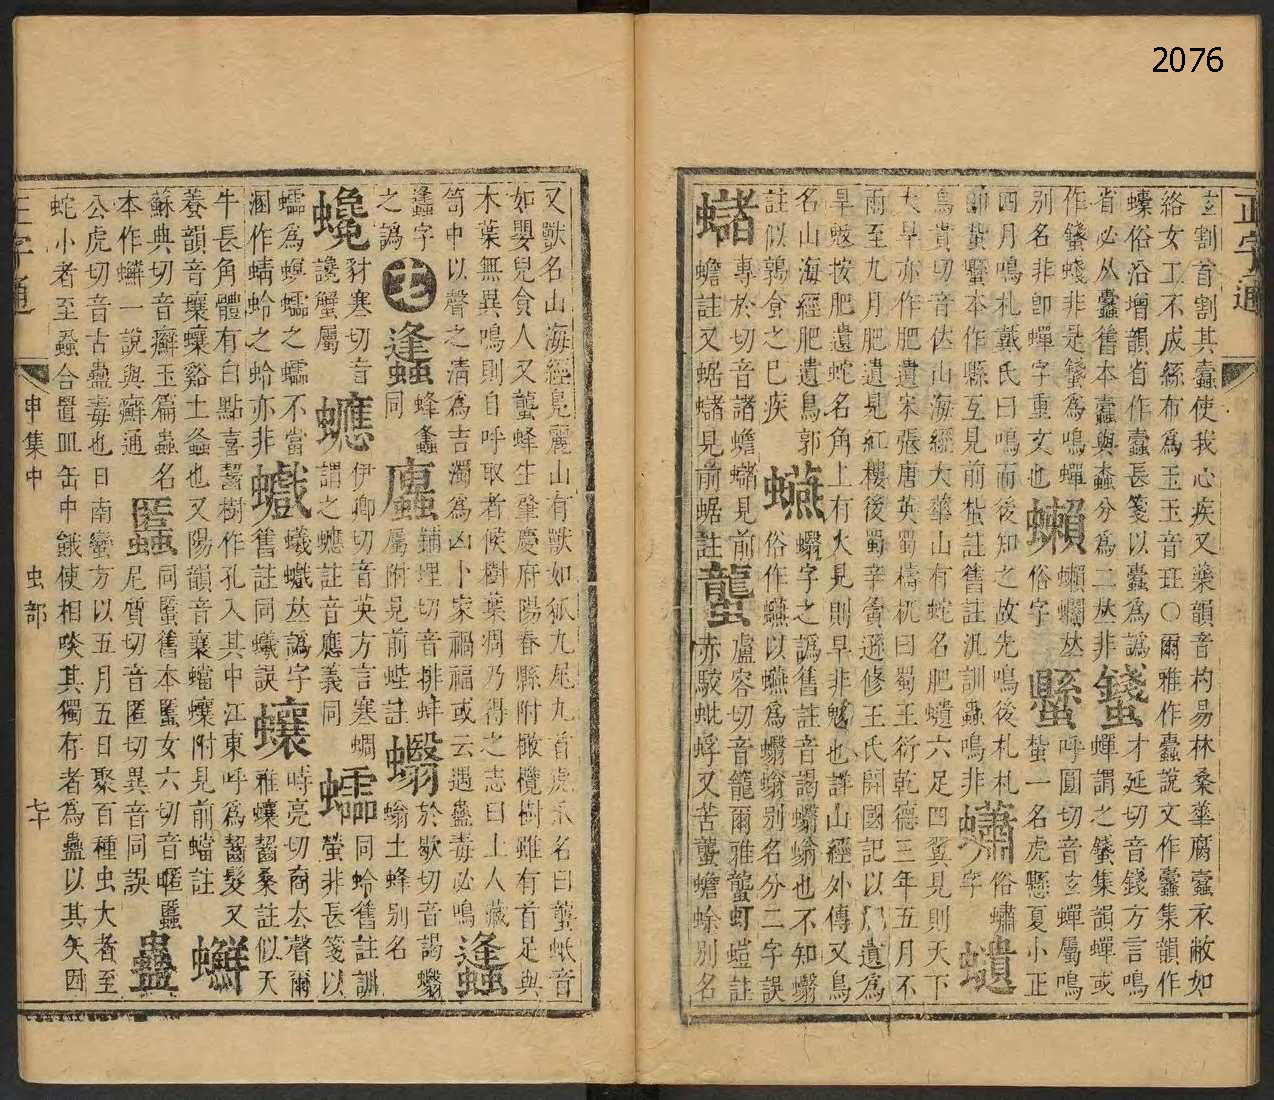 2076
正字通
玄割首割其蠹使我心疾又藥韻音杓易林桑華腐蠹衣敝如
絡女工不成絲布為玉玉音班○爾雅作蠹說文作蠹集韻作
螙俗沿增韻省作蠹長箋以蠹為譌
省必从橐舊本蠹與螙分為二𠀤非 蠽 才延切音錢方言鳴
作蠽蟬非是蠽為鳴蟬 蟬謂之蠽集韻蟬或
別名非卽蟬字重文也 蠏 俗字 蠏蠏𠀤 蠠 呼圓切音玄蟬屬鳴
四月鳴札戴氏曰鳴而後知之故先鳴後札札 蝒一名虎懸夏小正
卽蝒蠠本作縣互見前蝒註舊註汎訓蟲鳴非 蠨 俗蟰字 䗽
烏貴切音位山海經大華山有蛇名肥䗽六足四翼見則天下
大旱亦作肥遺宋張唐英蜀檮杌曰蜀王衍乾德三年五月不
雨至九月肥遺見紅樓後蜀辛夤遜修王氏開國記以肥遺為
旱魃按肥遺蛇名角上有火見則旱非魃也詳山經外傳又鳥
名山海經肥遺鳥郭
註似鶉食之已疾 蠮字之譌舊註音謁蠮螉也不知蠮
俗作䗡以䗡為蠮螉別名分二字誤
蠩 專於切音諸蟾蠩見前
蟾註又蝫蠩見前蝫註 蠪 盧容切音籠爾雅蠪虰螘註
赤駮蚍蜉又苦蠪蟾蜍別名
又獸名山海經鳧麗山有獸如狐九尾九首虎爪名曰蠪蛭音
如嬰兒食人又蠪蜂生肇慶府陽春縣附橄欖樹雖有首足與
木葉無異鳴則自呼取者候樹葉凋乃得之志曰土人藏
笥中以聲之清為吉濁為凶卜家禍福或云遇蠱毒必鳴 蠭
蠭字
之譌 十七 蠭 同蜂 鋪埋切音排蚌
屬附見前蜌註 蠮 於歇切音謁蠮
螉土蜂別名
豺塞切音
讒蟹屬 伊卿切音英方言寒蜩
謂之蠯註音應義同 蠕 同蛉舊註訓
螢非長箋以
蠕為螟蠕之蠕不當
溷作蜻蛉之蛉亦非 蠘 蟻蠘𠀤譌字
舊註同蟻誤 蠰 時亮切商去聲爾
雅蠰齧桑註似天
牛長角體有白點喜齧樹作孔入其中江東呼為齧髮又
養韻音壤蠰谿土螽也又陽韻音襄蟷蠰附見前蟷註 蠏
蘇典切音癬玉篇蟲名
本作蠏一說與癬通 同䘌舊本䘌女六切音暱蟁
尼質切音匿切異音同誤 蠱
公虎切音古蠱毒也日南蠻方以五月五日聚百種虫大者至
蛇小者至蝨合置皿缶中餓使相啖其獨有者為蠱以其矢因
正字通
申集中 虫部 七十